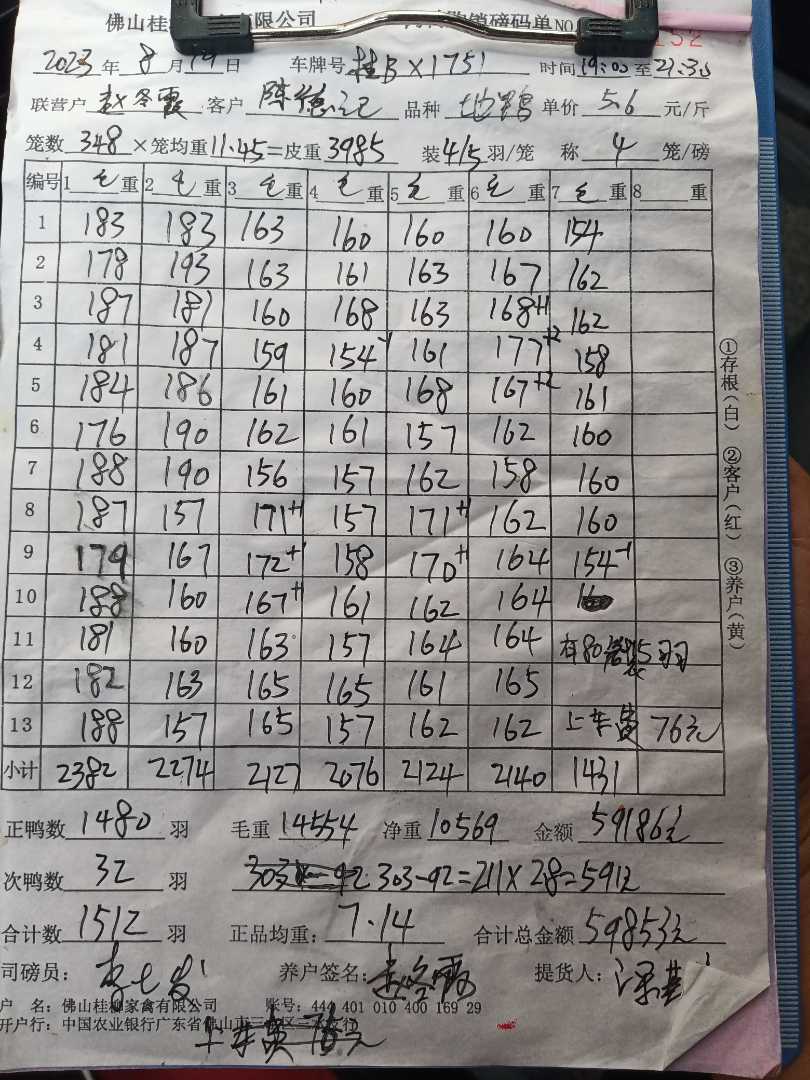 佛山桂柳家禽有限公司 销磅码单NO. 152
2023年8月19日 车牌号 桂B×1751 时间19:00至21:30
联营户 赵冬霞 客户 陈德记 品种 地鸭 单价 5.6 元/斤
笼数 348 ×笼均重 11.45=皮重 3985 装4/5羽/笼 称 4 笼/磅
编号 1毛重 2毛重 3毛重 4毛重 5毛重 6毛重 7毛重 8 重
1 183 183 163 160 160 160 154
2 178 193 163 161 163 167 162
3 187 181 160 168 163 168+1 162
4 181 187 159 154-1 161 177+2 158
5 184 186 161 160 168 167+2 161
6 176 190 162 161 157 162 160
7 188 190 156 157 162 158 160
8 187 157 171+1 157 171+1 162 160
9 179 167 172+1 158 170+1 164 154-1
10 188 160 167+1 161 162 164
11 181 160 163 157 164 164 有80笼装5羽
12 182 163 165 165 161 165
13 188 157 165 157 162 162 上车费 76元
小计 2382 2274 2127 2076 2124 2140 1431
正鸭数 1480 羽 毛重 14554 净重 10569 金额 59186元
次鸭数 32 羽 303-92=211×2.8=591元
合计数 1512 羽 正品均重: 7.14 合计总金额 59853元
司磅员: 养户签名: 赵冬霞 提货人:
户 名: 佛山桂柳家禽有限公司 账号: 444 401 010 400 169 29
开户行: 中国农业银行广东省佛山市三水区三水支行
上车费 76元
①存根(白) ②客户(红) ③养户(黄)